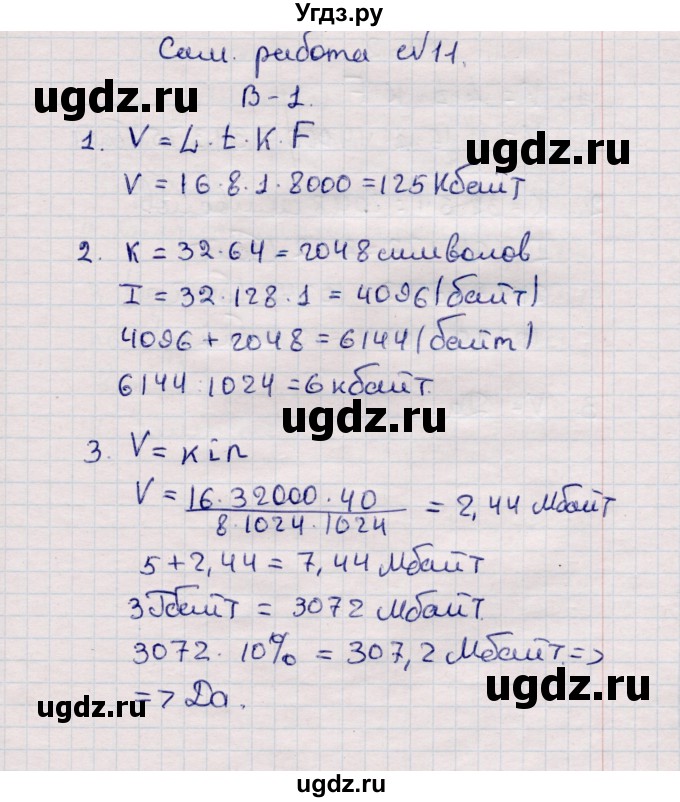 Угдз.ру
Сам. работа №11.
ugdz.ru
ugdz.ru
В-1.
1. V = L · t · K · F
ugdz.ru
V = 16 · 8 · 1 · 8000 = 125 Кбайт
2. K = 32 · 64 = 2048 символов
I = 32 · 128 · 1 = 4096 (байт)
4096 + 2048 = 6144 (байт)
6144 : 1024 = 6 кбайт.
ugdz.ru
3. V = кin
V = 16·32000·40 / 8·1024·1024 = 2,44 Мбайт
5 + 2,44 = 7,44 Мбайт
3Гбайт = 3072 Мбайт.
3072 · 10% = 307,2 Мбайт. =>
=> Да.
ugdz.ru
ugdz.ru
ugdz.ru